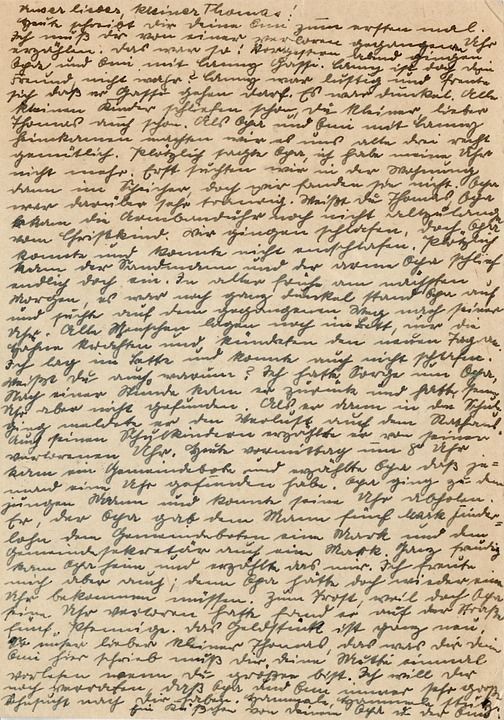 Unser lieber, kleiner Thomas!
Heute schreibt dir deine Omi zum ersten mal.
Ich muß dir von einer verloren gegangenen Uhr
erzählen. Das war so! Vorgestern abend gingen
Opa und Omi mit Gassi. ist doch dein
Freund nicht wahr? war lustig und freute
sich daß er Gassi gehen darf. Es war dunkel. Alle
kleinen Kinder schliefen schon, die kleiner lieber
Thomas auch schon. Als Opa und Omi mit
heimkamen machten wir es uns alle drei recht
gemütlich. Plötzlich sagte Opa, ich habe meine Uhr
nicht mehr. Erst suchten wir in der Wohnung
dann im, doch wir fanden sie nicht. Opa
war darüber sehr traurig. Weißt du Thomas, Opa
bekam die Armbanduhr noch nicht allzulang
vom Christkind. Wir gingen schlafen, doch Opa
konnte und konnte nicht einschlafen. Plötzlich
kam der Sandmann und der arme Opa schlief
endlich doch ein. In aller frühe am nächsten
Morgen, es war noch ganz dunkel stand Opa auf
und suchte auf dem gegangenen Weg nach seiner
Uhr. Alle Menschen lagen noch im Bett, nur die
Hähne krähten und kündeten den neuen Tag an.
Ich lag im Bette und konnte auch nicht schlafen.
Weißt du auch warum? Ich hatte Sorge um Opa.
Nach einer Stunde kam er zurück und hatte seine
Uhr aber nicht gefunden. Als er dann in die Schule
ging meldete er den Verlust auf dem Rathaus.
Auch seinen Schulkindern erzählte er von seiner
verlorenen Uhr. Heute vormittag um 8 Uhr
kam ein Gemeindebote und erzählte Opa daß je-
mand eine Uhr gefunden habe. Opa ging zu dem
jungen Mann und konnte seine Uhr abholen.
Er, der Opa gab dem Mann fünf Mark Finder-
lohn dem Gemeindeboten eine Mark und dem
Gemeindesekretär auch eine Mark. Ganz freudig
kam Opa heim und erzählte das mir. Ich freute
mich aber auch; denn Opa hätte doch wieder eine
Uhr bekommen müssen. Zum Trost, weil doch Opa
seine Uhr verloren hatte fand er auf der Straße
fünf Pfennige. Das Geldstück ist ganz neu.
unser lieber kleiner Thomas, das was dir deine
Omi hier schrieb muß dir deine Mutti einmal
vorlesen wenn du größer bist. Ich will dir
noch verraten, daß Opa und Omi immer sehr große
Sehnsucht nach dir haben.
Ein Küßchen von deinem Opa u. Omi